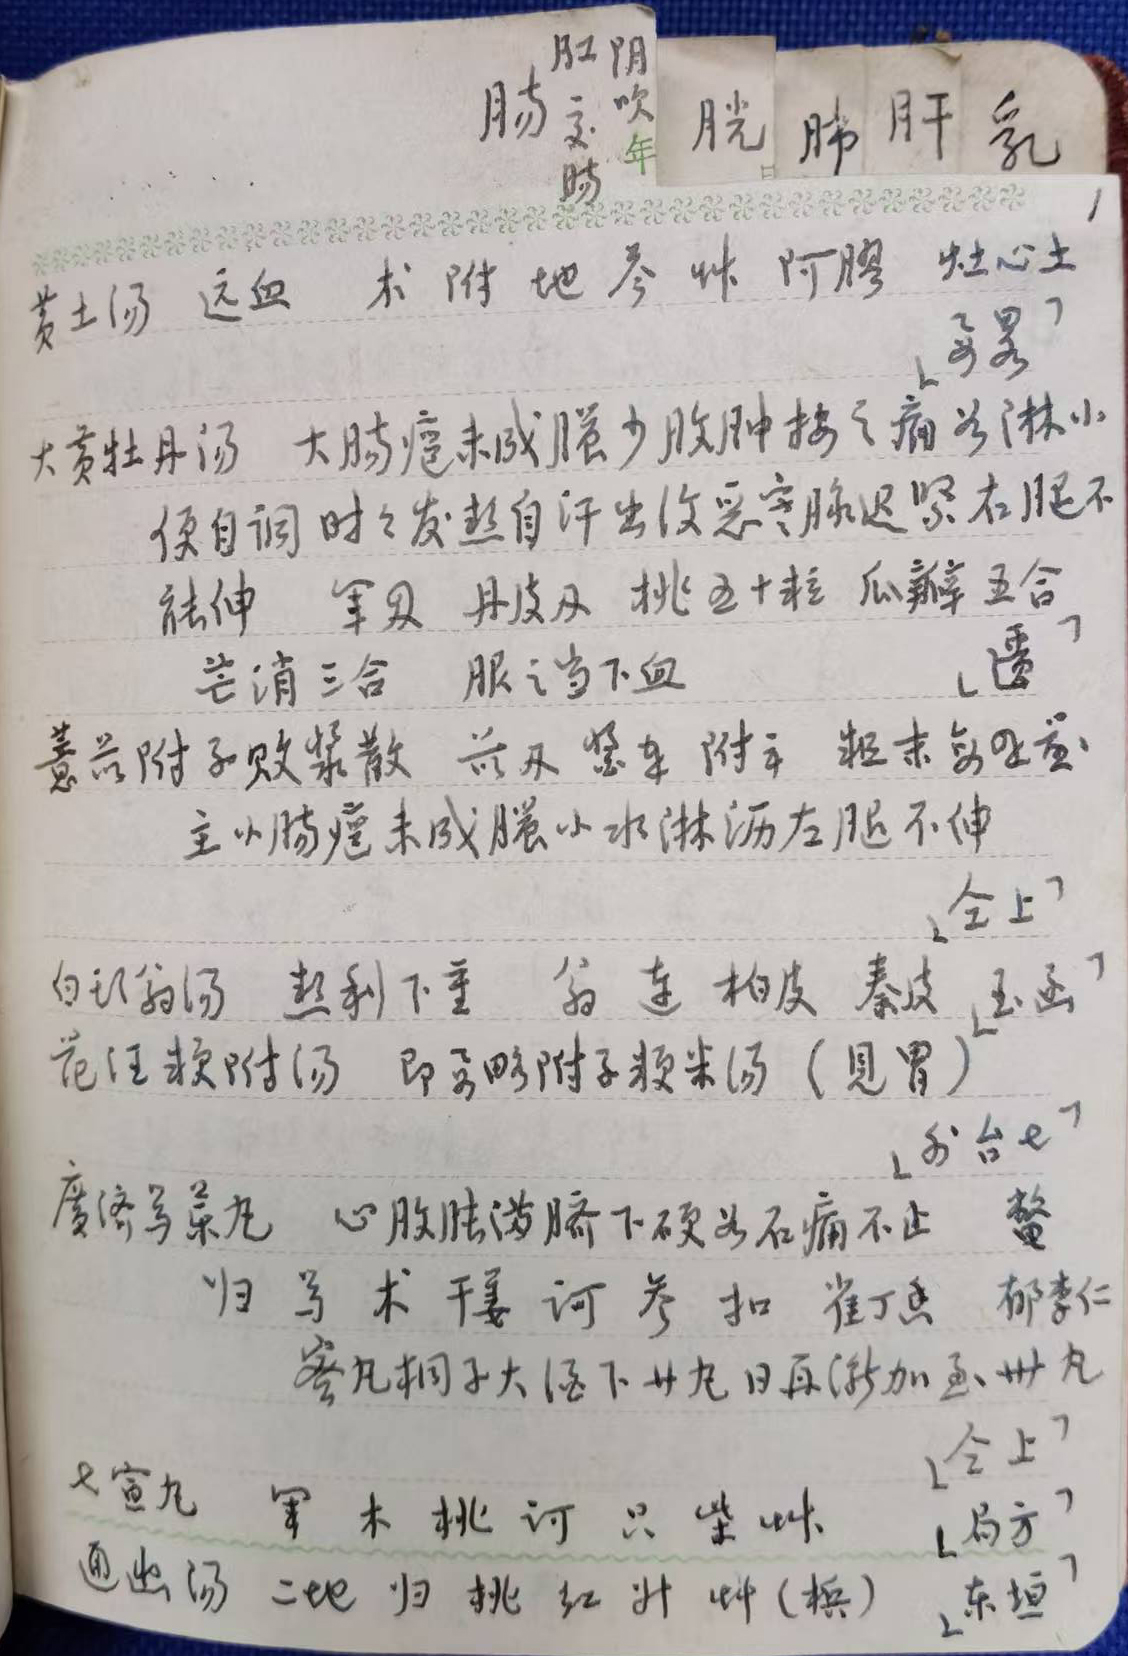 肠 肛 交肠 阴吹
年
胱 肺 肝 乳
1
黄土汤 远血 术 附 地 芩 艸 阿胶 灶心土
「要畧」
大黄牡丹汤 大肠痈未成脓少腹肿按之痛若淋小
便自调时々发热自汗出复恶寒脉迟紧右腿不
能伸 军 丹皮 桃五十粒 瓜瓣五合
芒消三合 服之当下血
薏苡附子败浆散 苡 浆 附 粗末
主小肠痈未成脓小水淋沥左腿不伸
「仝上」
白头翁汤 热利下重 翁 连 柏皮 秦皮 「玉函」
范汪粳附汤 即要略附子粳米汤（見胃）
「外台七」
廣济 丸 心腹胀满脐下硬若石痛不止 鳖
归 术 干姜 诃 参 扣 雀 丁香 郁李仁
蜜丸桐子大酒下廿丸日再渐加至卅丸
「仝上」
七宣丸 军 木 桃 诃 只 柴 艸 「局方」
通幽汤 二地 归 桃 红 升 艸（槟） 「东垣」